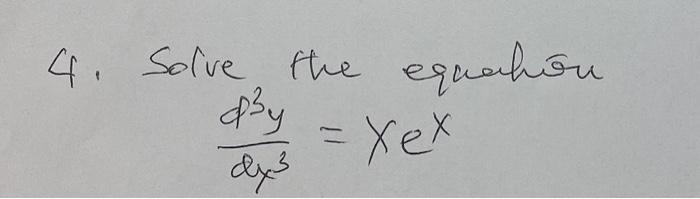 4. Solve the equation
d³y/dx³ = xeˣ